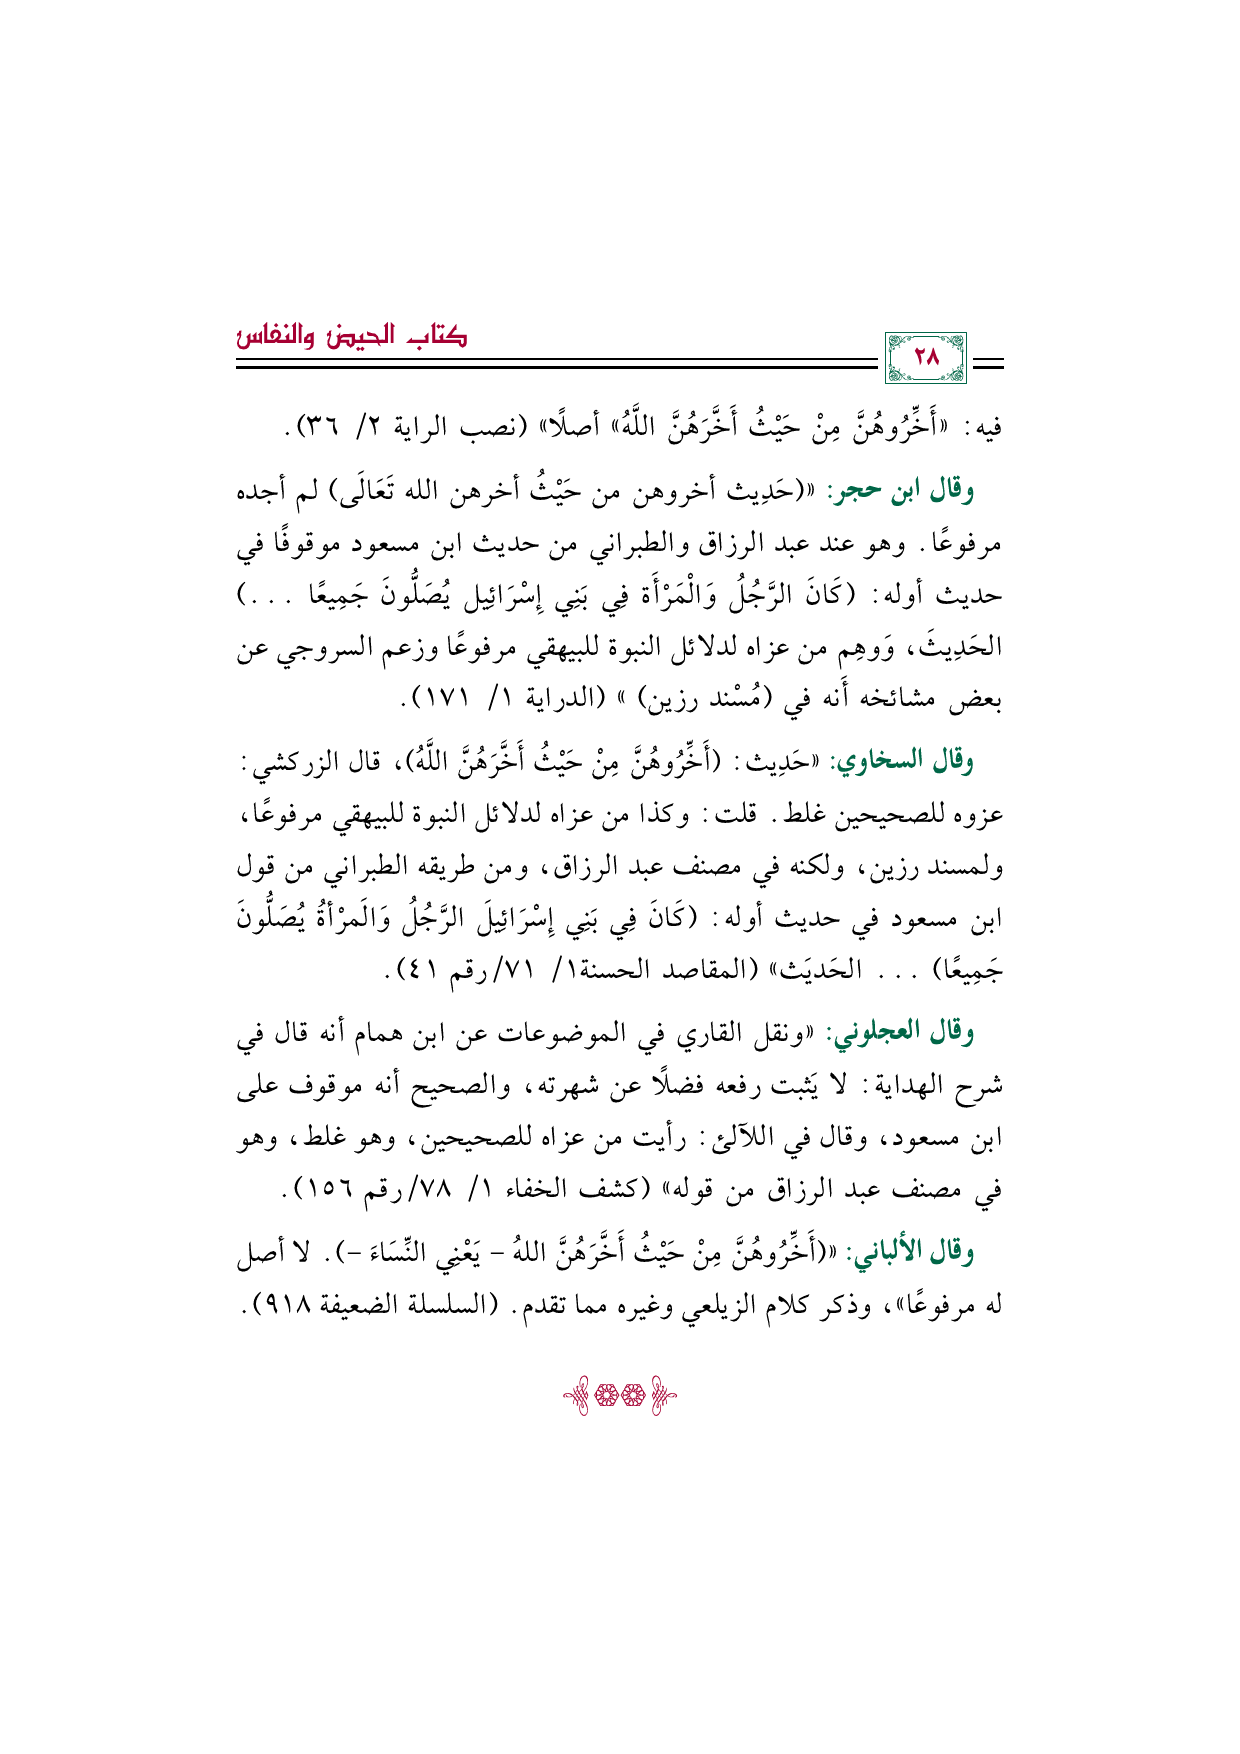 كتاب الحيض والنفاس
٢٨
فيه: «أَخِّرُوهُنَّ مِنْ حَيْثُ أَخَّرَهُنَّ اللَّهُ» أصلًا» (نصب الراية ٢/ ٣٦).
وقال ابن حجر: «(حَدِيث أخروهن من حَيْثُ أخرهن الله تَعَالَى) لم أجده
مرفوعًا. وهو عند عبد الرزاق والطبراني من حديث ابن مسعود موقوفًا في
حديث أوله: (كَانَ الرَّجُلُ وَالْمَرْأَة فِي بَنِي إِسْرَائِيل يُصَلُّونَ جَمِيعًا ...)
الحَدِيثَ، وَوهِم من عزاه لدلائل النبوة للبيهقي مرفوعًا وزعم السروجي عن
بعض مشائخه أَنه في (مُسْند رزين) » (الدراية ١/ ١٧١).
وقال السخاوي: «حَدِيث: (أَخِّرُوهُنَّ مِنْ حَيْثُ أَخَّرَهُنَّ اللَّهُ)، قال الزركشي:
عزوه للصحيحين غلط. قلت: وكذا من عزاه لدلائل النبوة للبيهقي مرفوعًا،
ولمسند رزين، ولكنه في مصنف عبد الرزاق، ومن طريقه الطبراني من قول
ابن مسعود في حديث أوله: (كَانَ فِي بَنِي إِسْرَائِيلَ الرَّجُلُ وَالَمرْأةُ يُصَلُّونَ
جَمِيعًا) ... الحَديَث» (المقاصد الحسنة١/ ٧١/رقم ٤١).
وقال العجلوني: «ونقل القاري في الموضوعات عن ابن همام أنه قال في
شرح الهداية: لا يَثبت رفعه فضلًا عن شهرته، والصحيح أنه موقوف على
ابن مسعود، وقال في اللآلئ: رأيت من عزاه للصحيحين، وهو غلط، وهو
في مصنف عبد الرزاق من قوله» (كشف الخفاء ١/ ٧٨/رقم ١٥٦).
وقال الألباني: «(أَخِّرُوهُنَّ مِنْ حَيْثُ أَخَّرَهُنَّ اللهُ – يَعْنِي النِّسَاءَ –). لا أصل
له مرفوعًا»، وذكر كلام الزيلعي وغيره مما تقدم. (السلسلة الضعيفة ٩١٨).